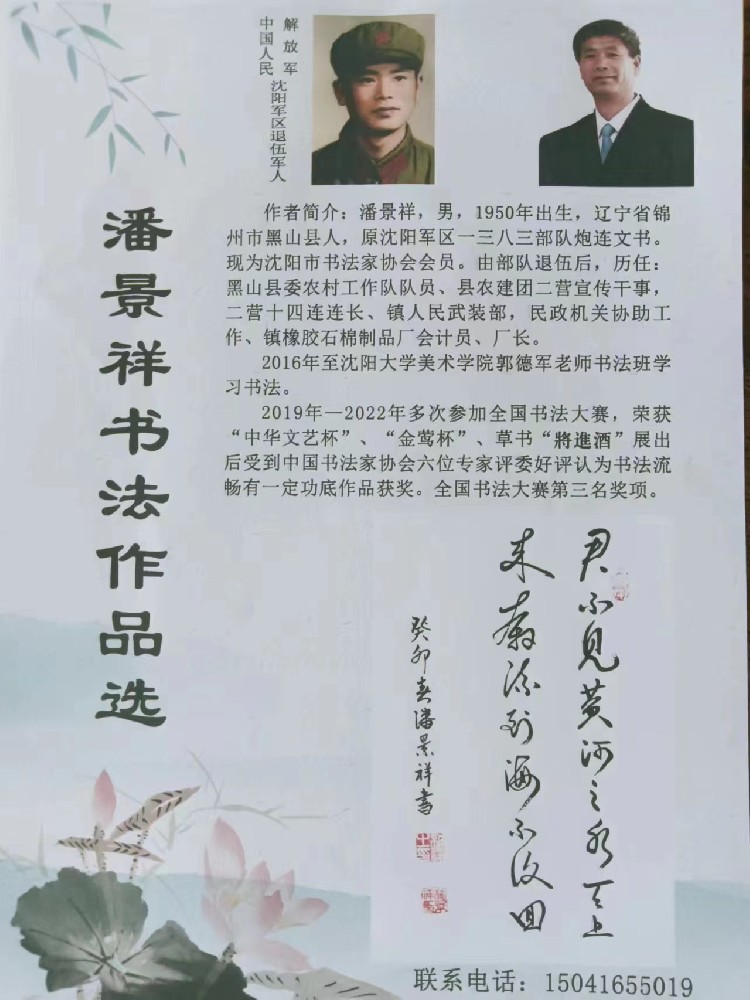 中国人民
解放军
沈阳军区退伍军人
潘景祥书法作品选
作者简介：潘景祥，男，1950年出生，辽宁省锦
州市黑山县人，原沈阳军区一三八三部队炮连文书。
现为沈阳市书法家协会会员。由部队退伍后，历任：
黑山县委农村工作队队员、县农建团二营宣传干事，
二营十四连连长、镇人民武装部，民政机关协助工
作、镇橡胶石棉制品厂会计员、厂长。
2016年至沈阳大学美术学院郭德军老师书法班学
习书法。
2019年—2022年多次参加全国书法大赛，荣获
“中华文艺杯”、“金莺杯”、草书“將進酒”展出
后受到中国书法家协会六位专家评委好评认为书法流
畅有一定功底作品获奖。全国书法大赛第三名奖项。
君不见黄河之水天上
来奔流到海不复回
癸卯春潘景祥書
联系电话：15041655019